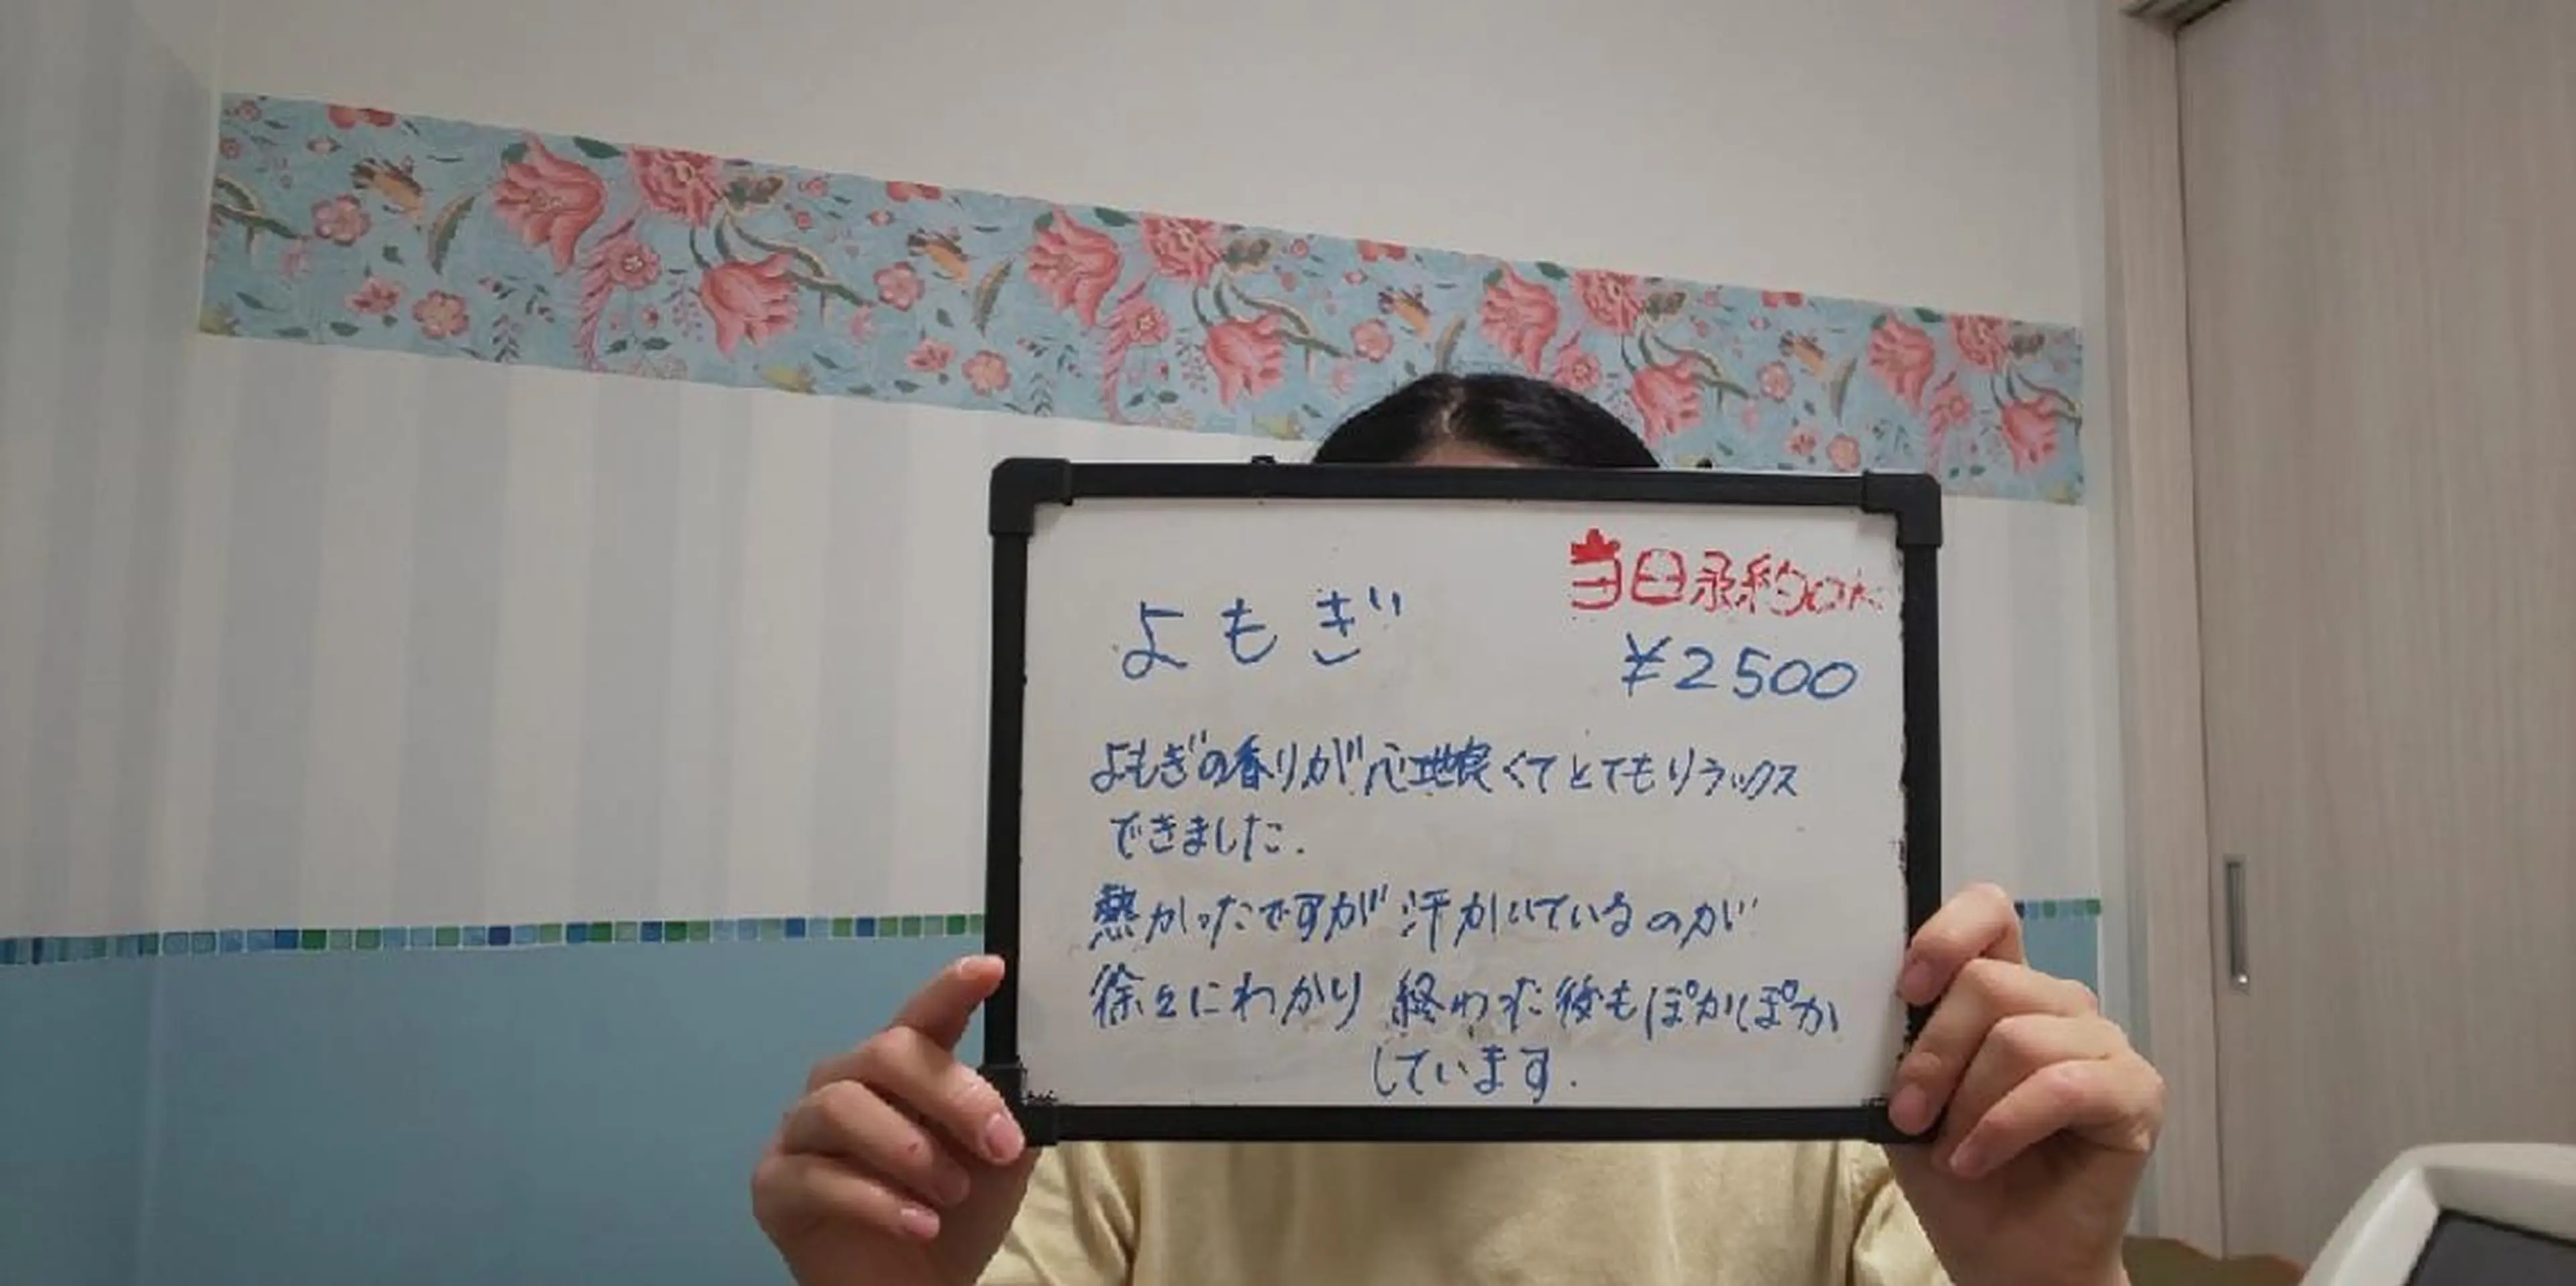 当日予約OK
よもぎ
¥2500
よもぎの香りが心地良くてとてもリラックス
できました.
熱かったですが汗かいているのが
徐々にわかり 終わった後もぽかぽか
しています.